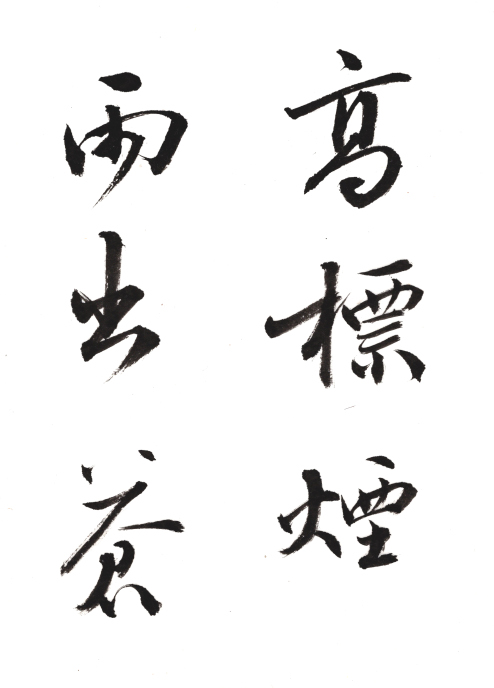 高標煙
雨出蒼